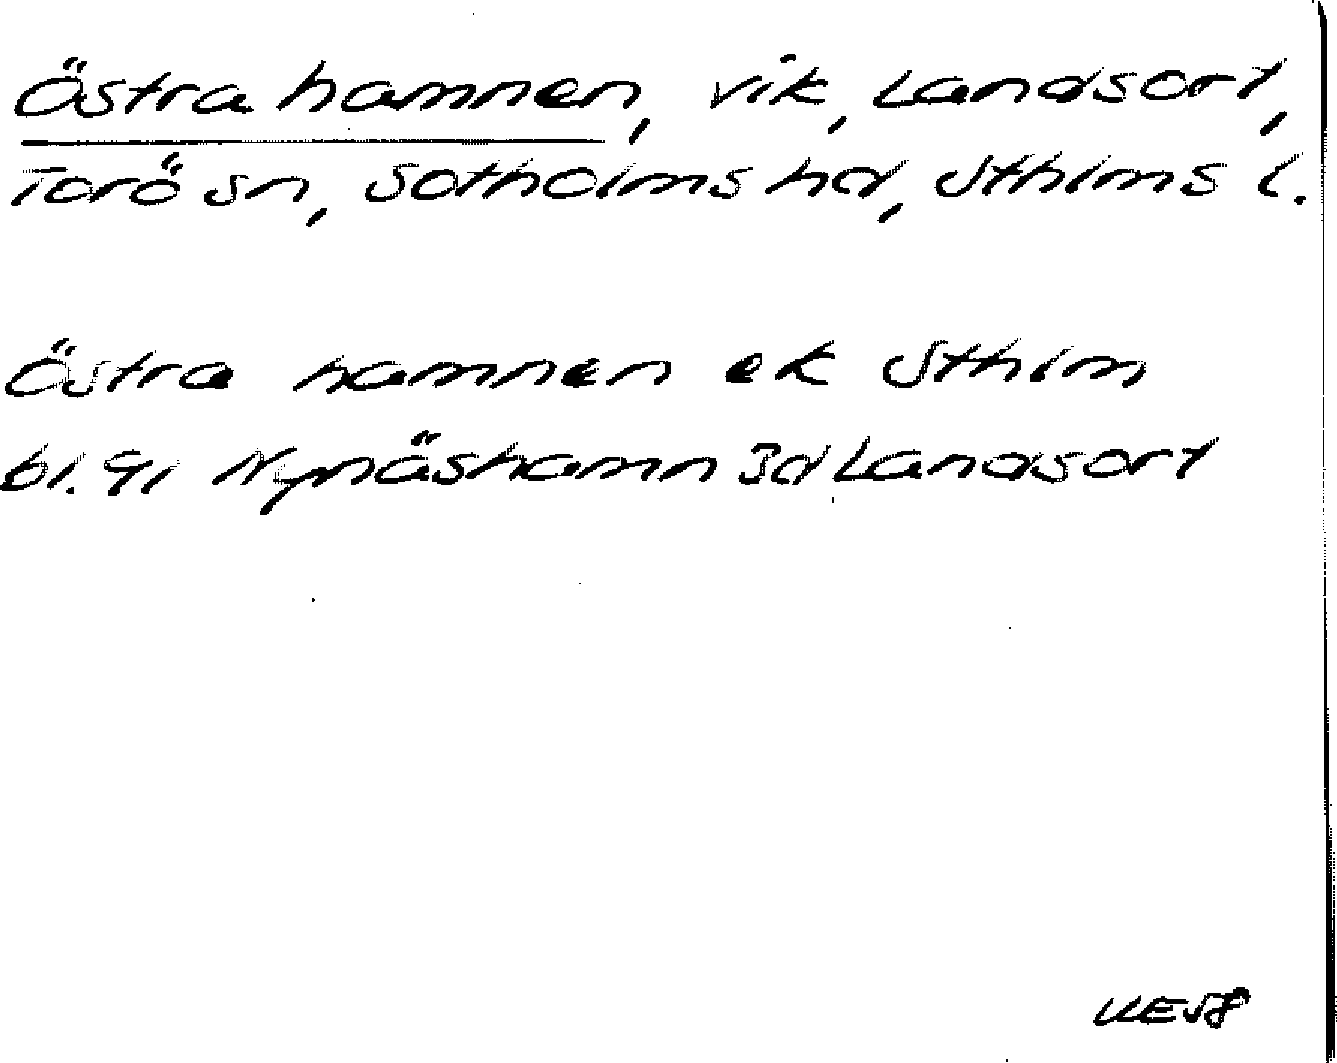 Östra hamnen, vik, Landsort,
Torö sn, Sotholms hd, Sthlms l.
Östra hamnen ek Sthlm
bl. 91 Nynäshamn 3d Landsort